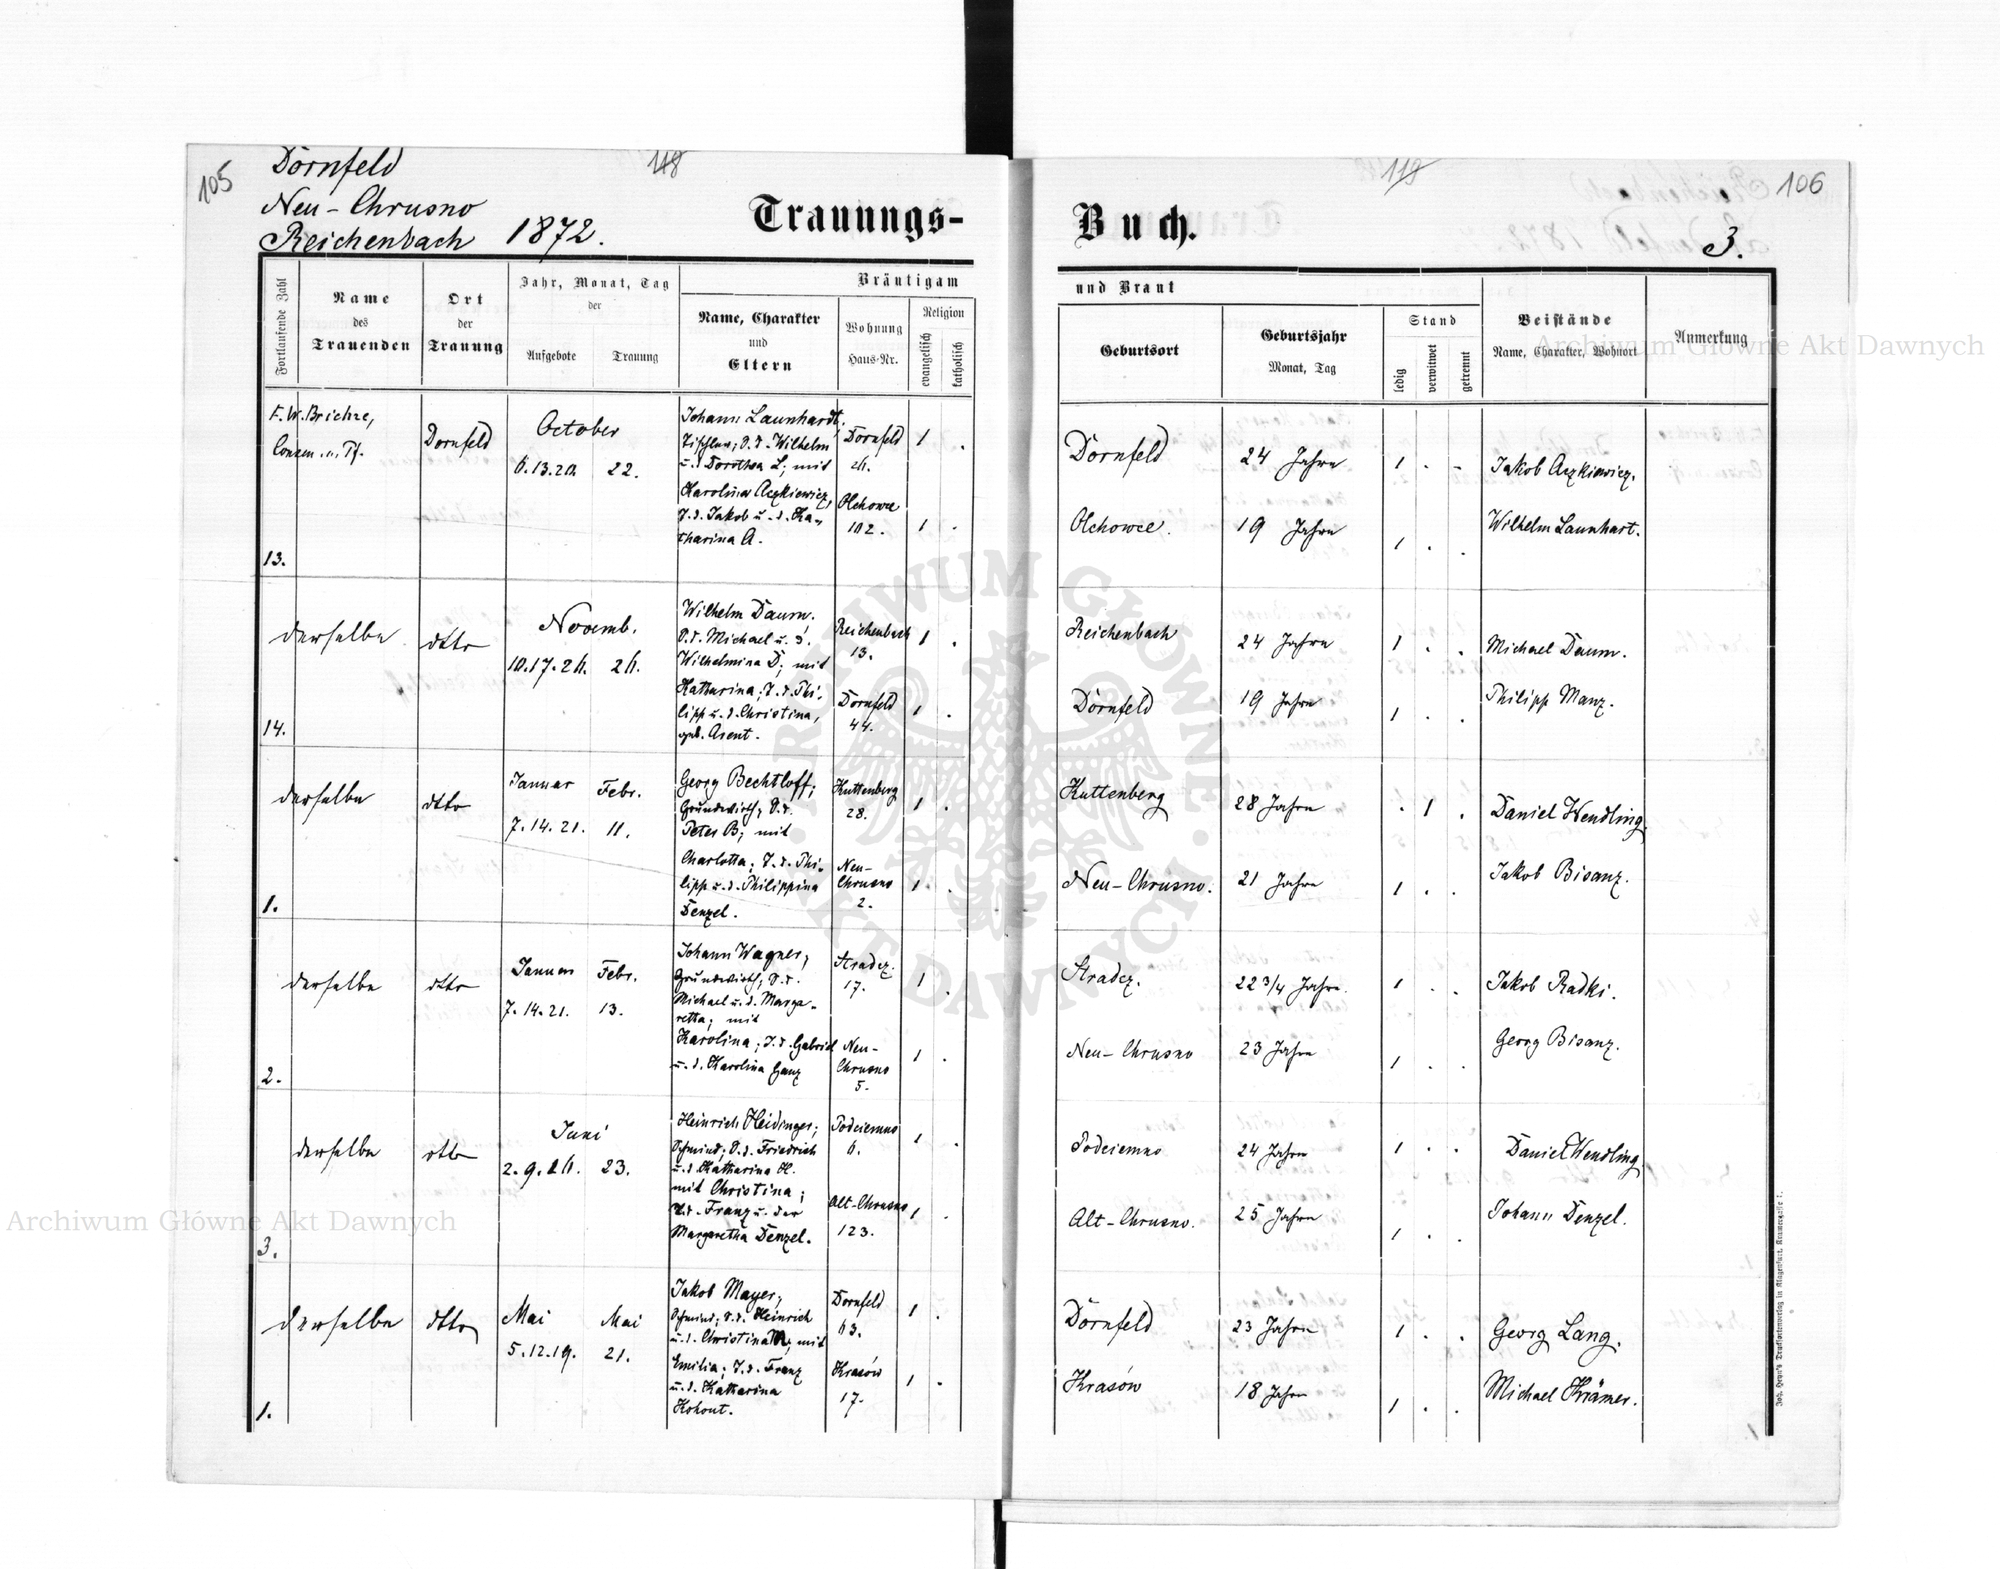 105
Dornfeld
Neu-Chrusno
Reichenbach 1872.
118
Trauungs-
Fortlaufende Zahl
Name
des
Trauenden
Ort
der
Trauung
Jahr, Monat, Tag
der
Aufgebote
Trauung
Bräutigam
Name, Charakter
und
Eltern
Wohnung
Haus-Nr.
Religion
evangelisch
katholisch
13.
F. W. Brichze,
Consen. u. Pf.
Dornfeld
October
6. 13. 20
22.
Johann Launhardt,
Tischler; S. d. Wilhelm
u. d. Dorothea L; mit
Karolina Aczkiewicz,
T. d. Jakob u. d. Ka-
tharina A.
Dornfeld
26.
Olchowce
102.
1 .
1 .
14.
derselbe
dtto
Novemb.
10. 17. 24.
26.
Wilhelm Daum,
S. d. Michael u. d.
Wilhelmina D; mit
Katharina; T. d. Phi-
lipp u. d. Christina,
geb. Arent.
Reichenbach
13.
Dornfeld
44.
1 .
1 .
1.
derselbe
dtto
Januar
7. 14. 21.
Febr.
11.
Georg Bechtloff;
Grundwirth, S. d.
Peter B; mit
Charlotta; T. d. Phi-
lipp u. d. Philippina
Denzel.
Kuttenberg
28.
Neu-
Chrusno
2.
1 .
1 .
2.
derselbe
dtto
Januar
7. 14. 21.
Febr.
13.
Johann Wagner,
Grundwirth; S. d.
Michael u. d. Marga-
retha; mit
Karolina; T. d. Gabriel
u. d. Karolina Ganz
Stradcz.
17.
Neu-
Chrusno
5.
1 .
1 .
3.
derselbe
dtto
Juni
2. 9. 16.
23.
Heinrich Heidinger;
Schmied; S. d. Friedrich
u. d. Katharina H.
mit Christina;
T. d. Franz u. der
Margaretha Denzel.
Podciemno
6.
Alt-Chrusno
123.
1 .
1 .
1.
derselbe
dtto
Mai
5. 12. 19.
Mai
21.
Jakob Mayer,
Schmied; S. d. Heinrich
u. d. Christina M; mit
Emilia; T. d. Franz
u. d. Katharina
Kohout.
Dornfeld
63.
Krasów
17.
1 .
1 .
119
106
Buch.
3.
und Braut
Geburtsort
Geburtsjahr
Monat, Tag
Stand
ledig
verwitwet
getrennt
Beistände
Name, Charakter, Wohnort
Anmerkung
Dornfeld
24 Jahre
1 . .
Jakob Aczkiewicz.
Olchowce.
19 Jahre
1 . .
Wilhelm Launhart.
Reichenbach
24 Jahre
1 . .
Michael Daum.
Dornfeld
19 Jahre
1 . .
Philipp Manz.
Kuttenberg
28 Jahre
. 1 .
Daniel Wendling.
Neu-Chrusno.
21 Jahre
1 . .
Jakob Bisanz.
Stradcz.
22 3/4 Jahre.
1 . .
Jakob Radki.
Neu-Chrusno
23 Jahre
1 . .
Georg Bisanz.
Podciemno
24 Jahre
1 . .
Daniel Wendling
Alt-Chrusno.
25 Jahre
1 . .
Johann Denzel.
Dornfeld
23 Jahre
1 . .
Georg Lang.
Krasów
18 Jahre
1 . .
Michael Krämer.
Archiwum Główne Akt Dawnych
Archiwum Główne Akt Dawnych
ARCHIWUM GŁÓWNE AKT DAWNYCH